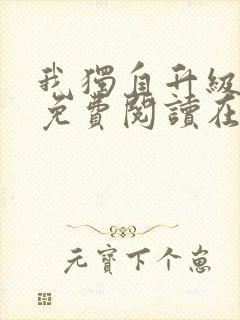 我獨自升級
免費閱讀在
元寶下个崽